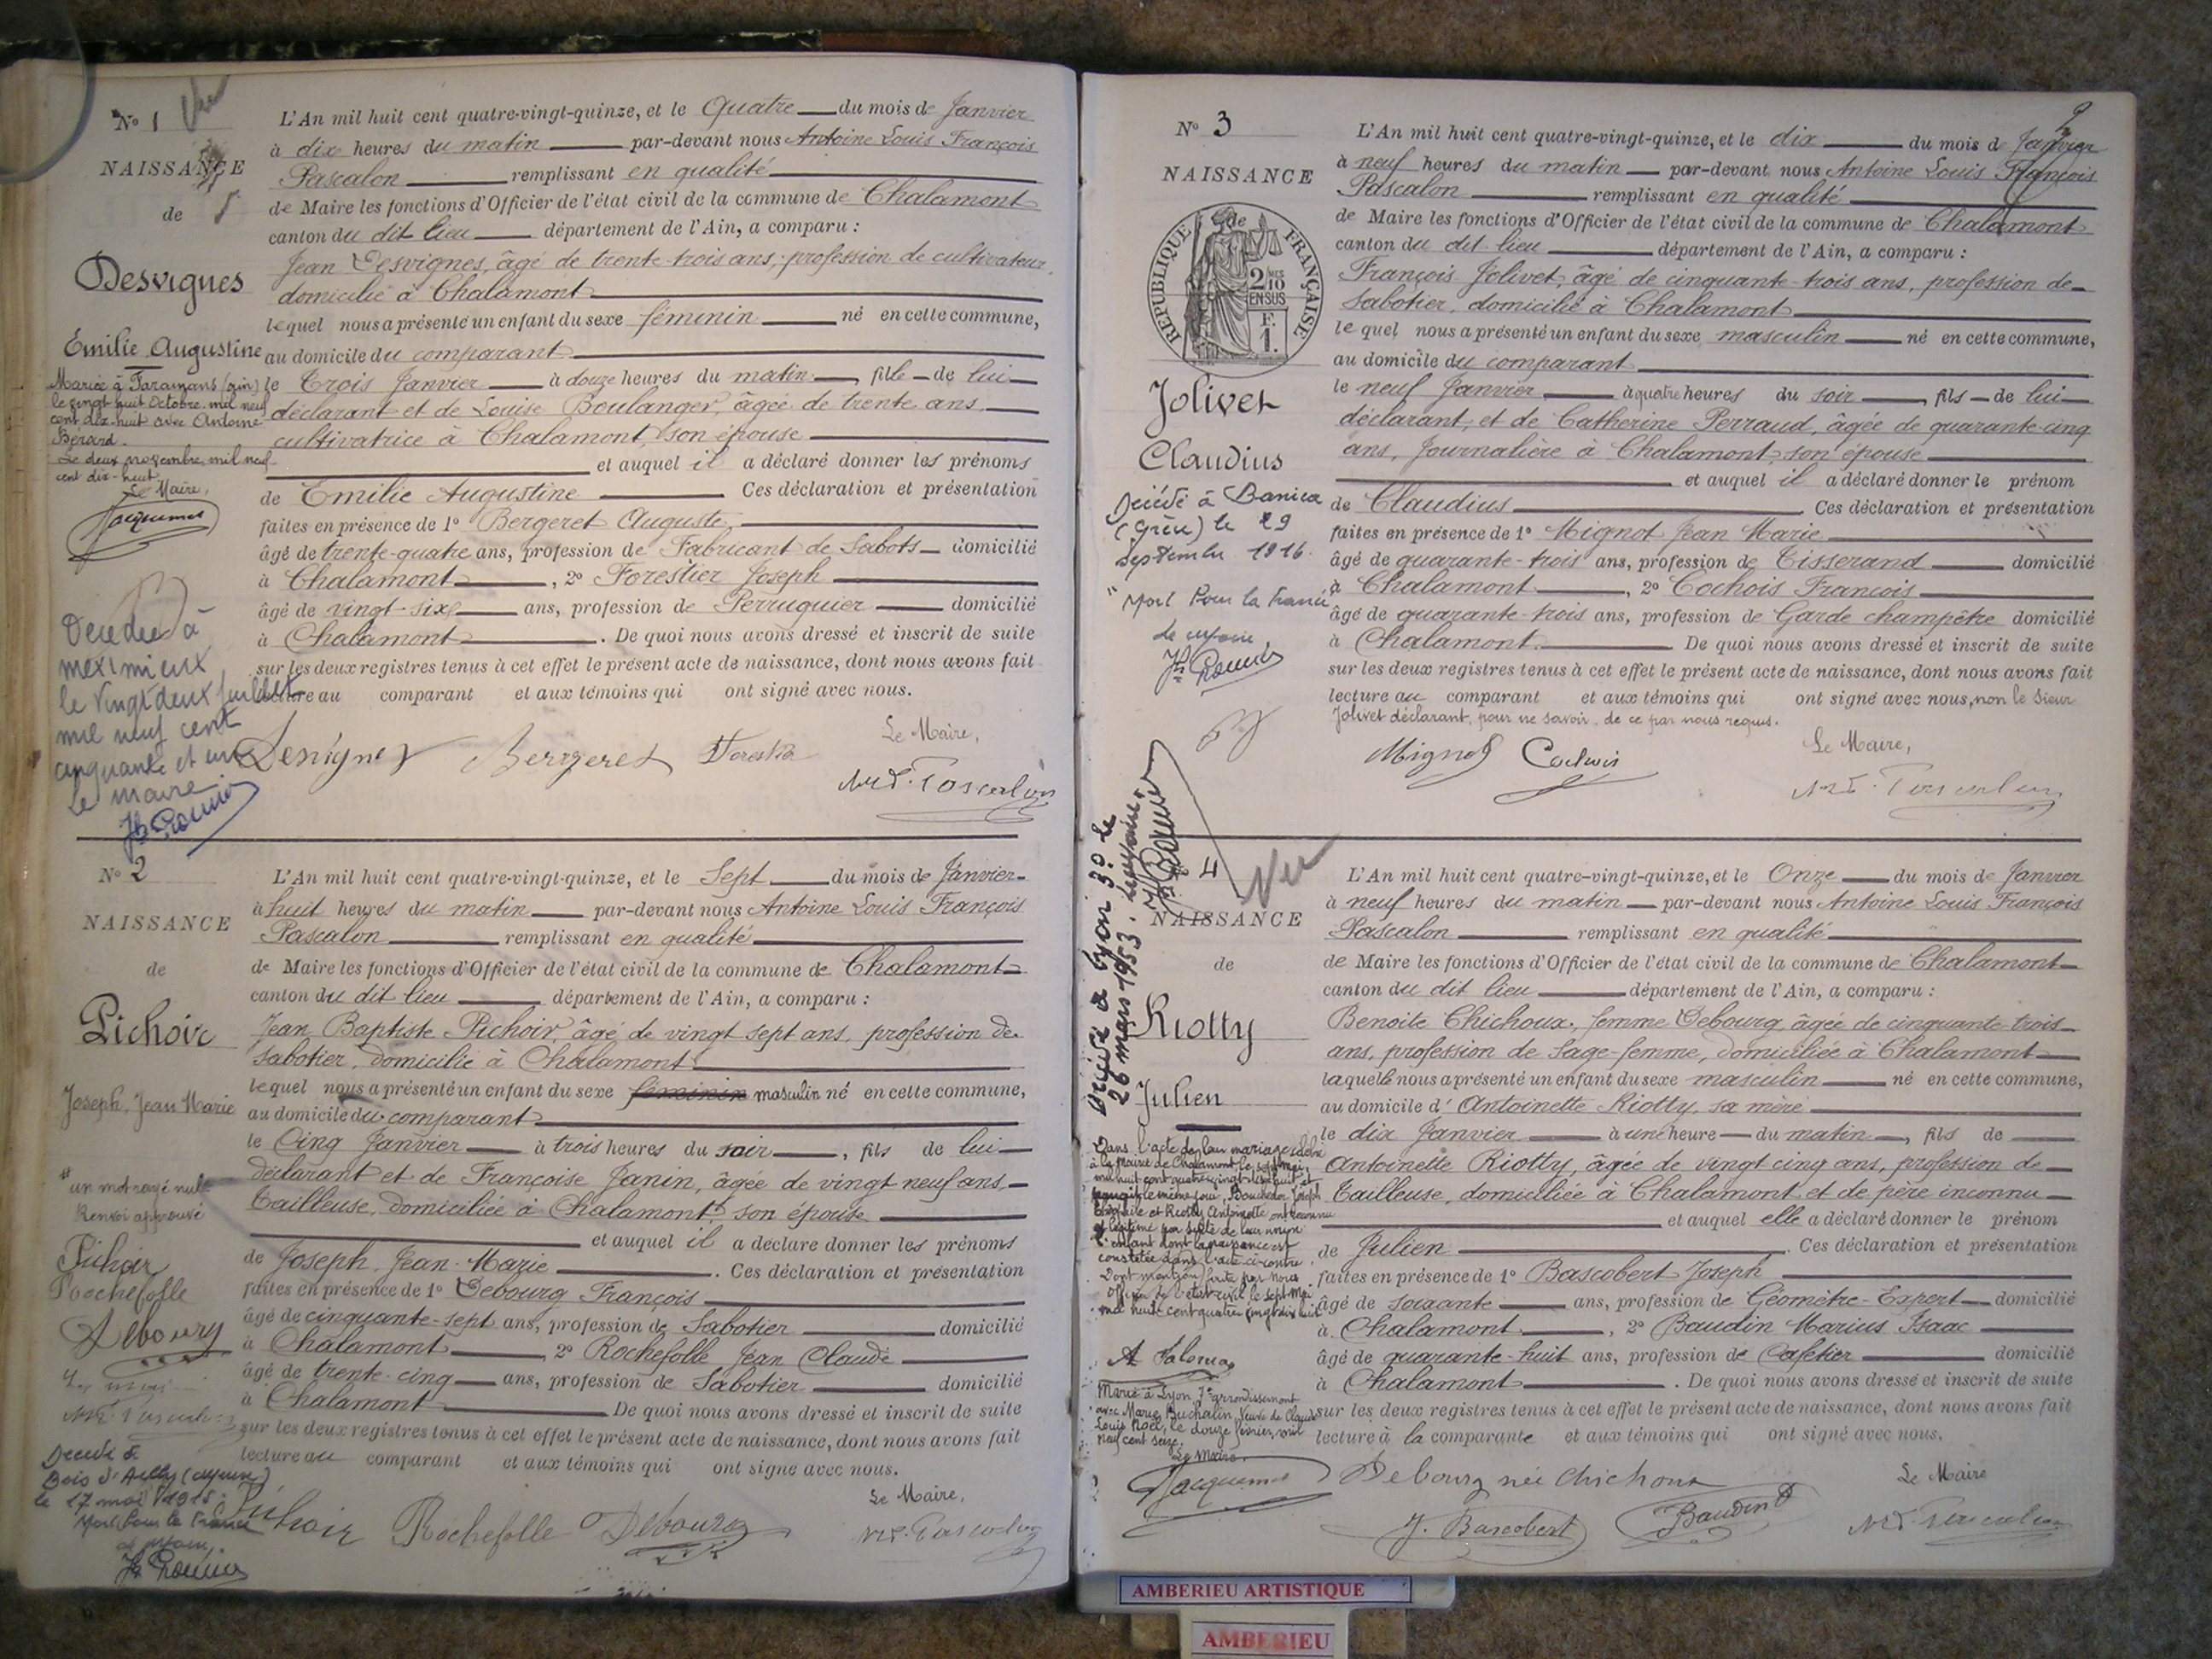 N° 1
NAISSANCE
de
Desvignes
Emilie Augustine
Mariée à Faramans (Ain)
le vingt huit Octobre mil neuf
cent dix-huit avec Antoine
Bérard.
Le deux novembre mil neuf
cent dix-huit.
Le Maire,
Jacquemet
Décédée à
meximieux
le vingt deux juillet
mil neuf cent
cinquante et un
Le maire
L'An mil huit cent quatre-vingt-quinze, et le Quatre du mois de Janvier
à dix heures du matin par-devant nous Antoine Louis François
Pascalon remplissant en qualité
de Maire les fonctions d'Officier de l'état civil de la commune de Chalamont
canton du dit lieu département de l'Ain, a comparu :
Jean Desvignes, âgé de trente-trois ans, profession de cultivateur,
domicilié à Chalamont
lequel nous a présenté un enfant du sexe féminin né en cette commune,
au domicile du comparant
le Trois Janvier à douze heures du matin, fille de lui
déclarant et de Louise Boulanger, âgée de trente ans,
cultivatrice à Chalamont, son épouse
et auquel il a déclaré donner les prénoms
de Emilie Augustine Ces déclaration et présentation
faites en présence de 1° Bergeret Auguste,
âgé de trente-quatre ans, profession de Fabricant de Sabots domicilié
à Chalamont, 2° Forestier Joseph
âgé de vingt-six ans, profession de Perruquier domicilié
à Chalamont. De quoi nous avons dressé et inscrit de suite
sur les deux registres tenus à cet effet le présent acte de naissance, dont nous avons fait
lecture au comparant et aux témoins qui ont signé avec nous.
Le Maire,
Bergeret
N° 2
NAISSANCE
de
Pichoir
Joseph, Jean Marie
un mot rayé nul
Renvoi approuvé
Pichoir
Rochefolle
Debourg
Décédé à
Bois d'Ailly (Meuse)
le 17 mai 1915
Mort pour la France
L'An mil huit cent quatre-vingt-quinze, et le Sept du mois de Janvier
à huit heures du matin par-devant nous Antoine Louis François
Pascalon remplissant en qualité
de Maire les fonctions d'Officier de l'état civil de la commune de Chalamont
canton du dit lieu département de l'Ain, a comparu :
Jean Baptiste Pichoir, âgé de vingt sept ans, profession de
Sabotier, domicilié à Chalamont
lequel nous a présenté un enfant du sexe féminin masculin né en cette commune,
au domicile du comparant
le Cinq Janvier à trois heures du soir, fils de lui
déclarant et de Françoise Janin, âgée de vingt neuf ans
Tailleuse, domiciliée à Chalamont, son épouse
et auquel il a déclaré donner les prénoms
de Joseph, Jean-Marie. Ces déclaration et présentation
faites en présence de 1° Debourg François
âgé de cinquante-sept ans, profession de Sabotier domicilié
à Chalamont 2° Rochefolle Jean Claude
âgé de trente-cinq ans, profession de Sabotier domicilié
à Chalamont De quoi nous avons dressé et inscrit de suite
sur les deux registres tenus à cet effet le présent acte de naissance, dont nous avons fait
lecture au comparant et aux témoins qui ont signé avec nous.
Le Maire,
Pichoir Rochefolle Debourg
2
N° 3
NAISSANCE
de
REPUBLIQUE FRANÇAISE
2/10 EN SUS
F. 1.
Jolivet
Claudius
Décédé à Banica
(Grèce) le 29
septembre 1916
"Mort Pour la France
Le Maire,
L'An mil huit cent quatre-vingt-quinze, et le dix du mois d Janvier
à neuf heures du matin par-devant nous Antoine Louis François
Pascalon remplissant en qualité
de Maire les fonctions d'Officier de l'état civil de la commune de Chalamont
canton du dit lieu département de l'Ain, a comparu :
François Jolivet, âgé de cinquante-trois ans, profession de
Sabotier, domicilié à Chalamont
le quel nous a présenté un enfant du sexe masculin né en cette commune,
au domicile du comparant
le neuf Janvier à quatre heures du soir, fils de lui
déclarant, et de Catherine Perraud, âgée de quarante-cinq
ans, Journalière à Chalamont, son épouse
et auquel il a déclaré donner le prénom
de Claudius Ces déclaration et présentation
faites en présence de 1° Mignot Jean Marie
âgé de quarante-trois ans, profession de Tisserand domicilié
à Chalamont, 2° Cochois François
âgé de quarante-trois ans, profession de Garde champêtre domicilié
à Chalamont. De quoi nous avons dressé et inscrit de suite
sur les deux registres tenus à cet effet le présent acte de naissance, dont nous avons fait
lecture au comparant et aux témoins qui ont signé avec nous, non le Sieur
Jolivet déclarant, pour ne savoir, de ce par nous requis.
Le Maire,
Mignot
4
NAISSANCE
de
Riotty
Julien
Décédé à Lyon 3° le
26 mars 1953
Dans l'acte de leur mariage célébré
à la Mairie de Chalamont le sept mai
mil huit cent quatre vingt dix huit et
le même jour, Bouchedor Joseph
Théophile et Riotty Antoinette ont reconnu
et légitimé par suite de leur union
l'enfant dont la naissance est
constatée dans l'acte ci-contre.
Dont mention faite par Nous
Officier de l'état civil le sept mai
mil huit cent quatre vingt dix huit
Marié à Lyon 7e arrondissement
avec Marie Buchalin, Veuve de Claude
Louis Noël, le douze février mil
neuf cent seize.
Le Maire,
Jacquemet
L'An mil huit cent quatre-vingt-quinze, et le Onze du mois de Janvier
à neuf heures du matin par-devant nous Antoine Louis François
Pascalon remplissant en qualité
de Maire les fonctions d'Officier de l'état civil de la commune de Chalamont
canton du dit lieu département de l'Ain, a comparu :
Benoite Chichoux, femme Debourg, âgée de cinquante-trois
ans, profession de Sage-femme, domiciliée à Chalamont
laquelle nous a présenté un enfant du sexe masculin né en cette commune,
au domicile d'Antoinette Riotty, sa mère
le dix Janvier à une heure du matin, fils de
Antoinette Riotty, âgée de vingt cinq ans, profession de
Tailleuse, domiciliée à Chalamont et de père inconnu
et auquel elle a déclaré donner le prénom
de Julien. Ces déclaration et présentation
faites en présence de 1° Bascobert Joseph
âgé de soixante ans, profession de Géomètre-Expert domicilié
à Chalamont, 2° Baudin Marius Isaac
âgé de quarante-huit ans, profession de Cafetier domicilié
à Chalamont. De quoi nous avons dressé et inscrit de suite
sur les deux registres tenus à cet effet le présent acte de naissance, dont nous avons fait
lecture à la comparante et aux témoins qui ont signé avec nous.
Debourg née Chichoux
Le Maire
J. Bascobert Baudin
AMBERIEU ARTISTIQUE
AMBERIEU